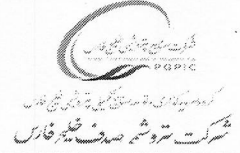 شرکت صنایع پتروشیمی خلیج فارس
PGPIC
گروه سرمایه گذاری و توسعه صنایع تکمیلی پتروشیمی خلیج فارس
شرکت پتروشیمی صدف خلیج فارس